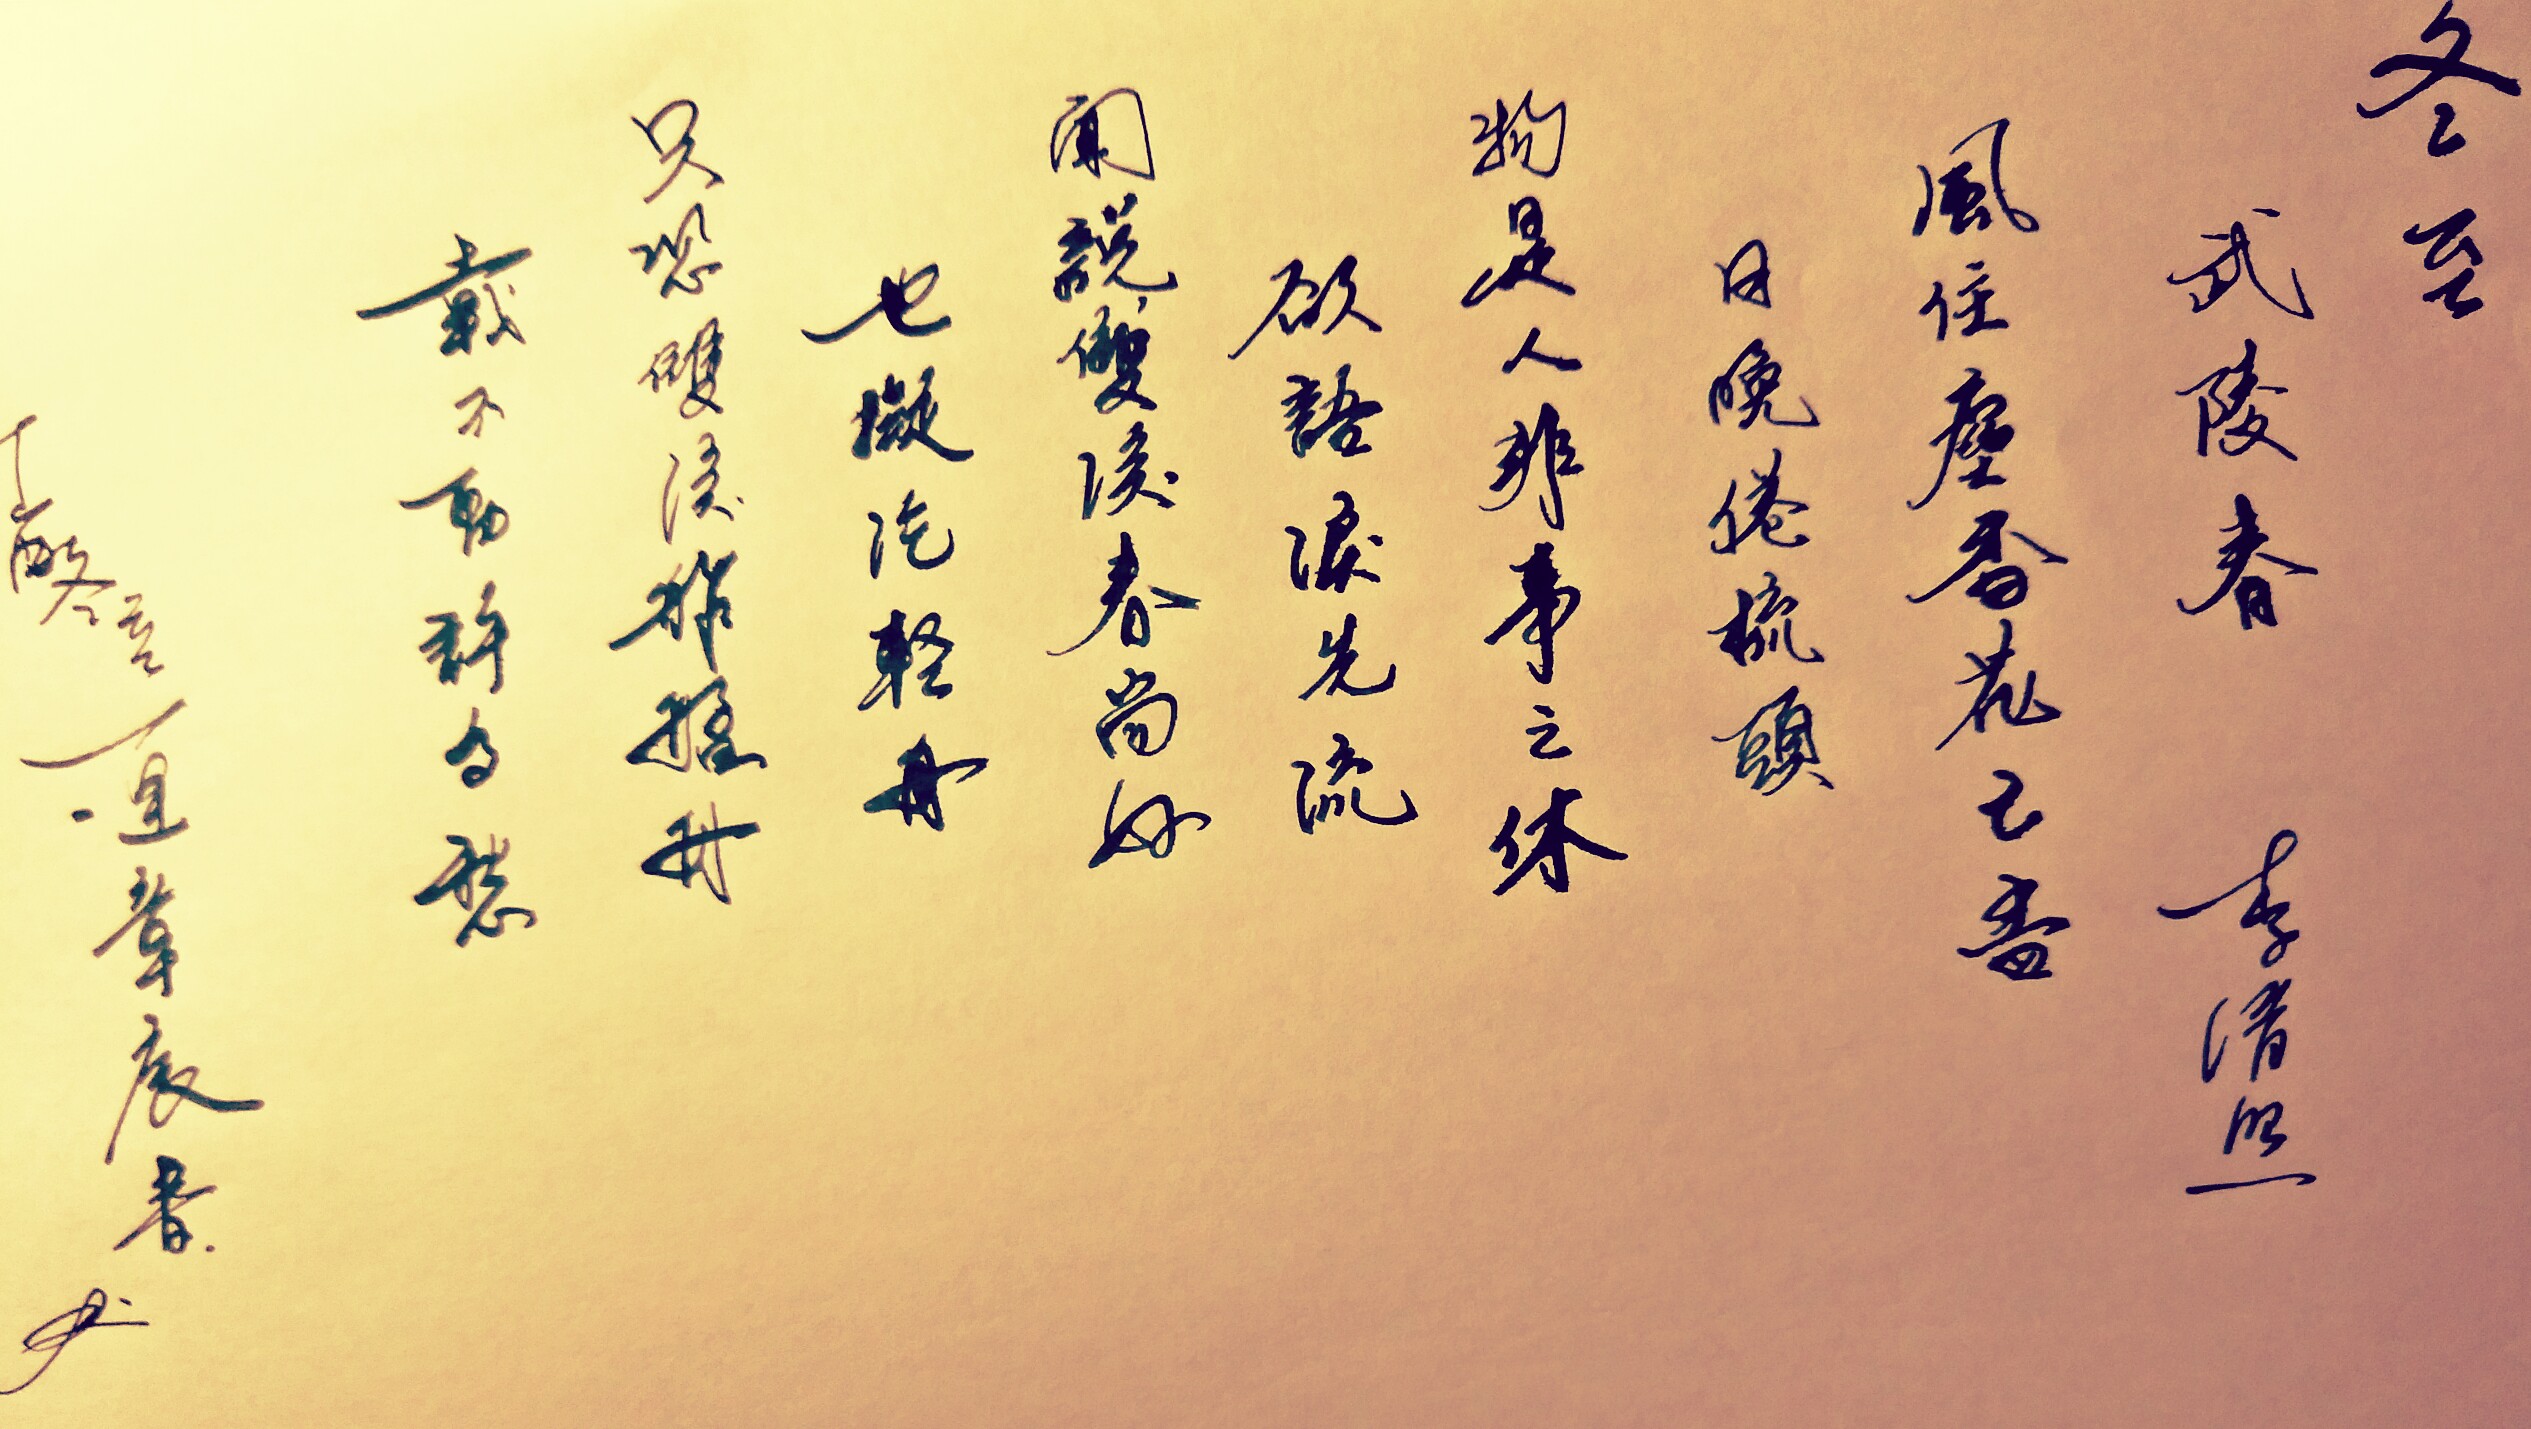 冬至
武陵春 李清照
風住塵香花已盡
日晚倦梳頭
物是人非事々休
欲語淚先流
聞說雙溪春尚好
也擬泛軽舟
只恐雙溪舴艋舟
載不動許多愁
丁酉冬至 章辰書